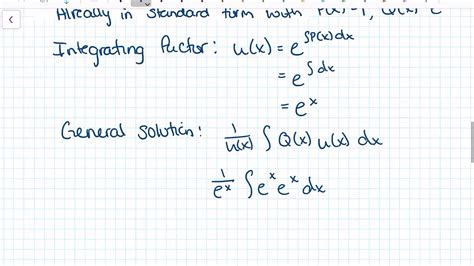 Already in standard form with P(x)=1, Q(x)=e
Integrating Factor: u(x) = e^∫P(x)dx
= e^∫dx
= e^x
General solution: 1/u(x) ∫ Q(x) u(x) dx
1/e^x ∫ e^x e^x dx